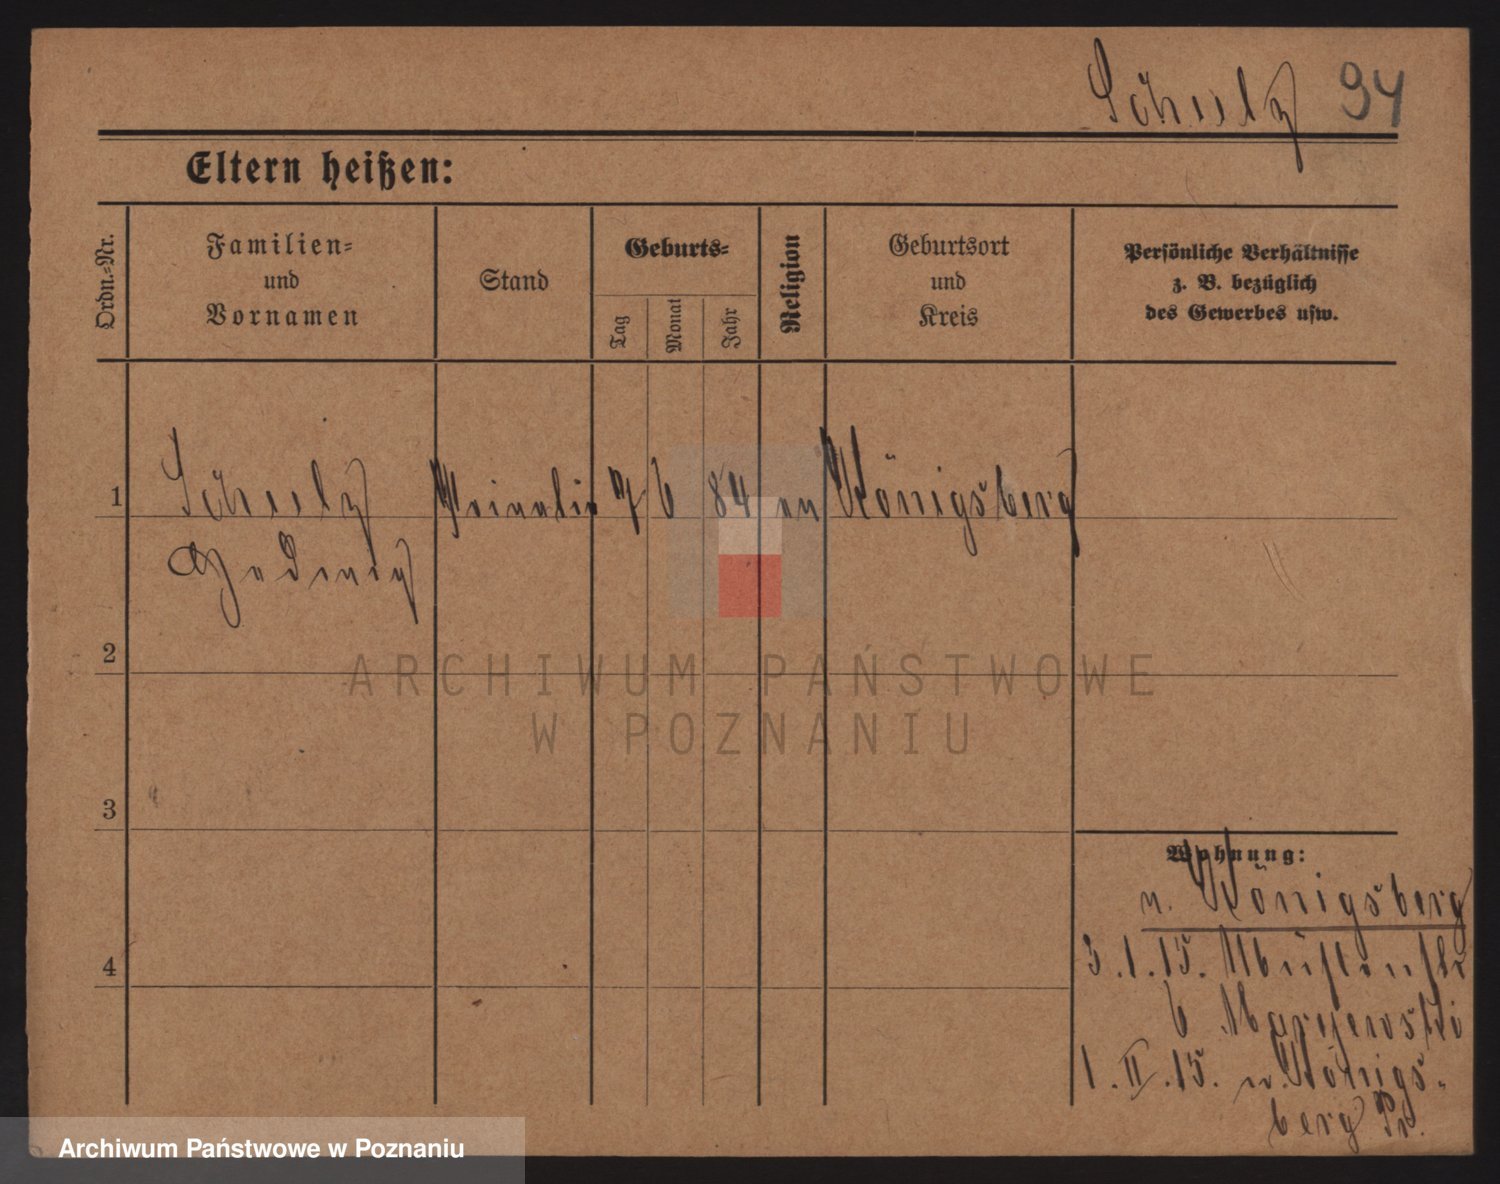 Schulz 94
Eltern heißen:
Ordn.-Nr.
Familien-
und
Vornamen
Stand
Geburts-
Tag
Monat
Jahr
Religion
Geburtsort
und
Kreis
Persönliche Verhältnisse
z. B. bezüglich
des Gewerbes usw.
1
Schulz
7 6 84
Königsberg
2
3
4
Wohnung:
n. Königsberg
3.1.15.
6
1.II.15. n. Königs-
berg Pr.
ARCHIWUM PAŃSTWOWE
W POZNANIU
Archiwum Państwowe w Poznaniu